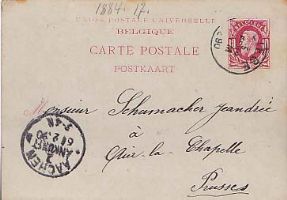 1884-17.
UNION POSTALE UNIVERSELLE
BELGIQUE
CARTE POSTALE
POSTKAART
Monsieur Schumacher Jeandrié
à
Aix-la-Chapelle
Prusse
AACHEN
ANKUNFT